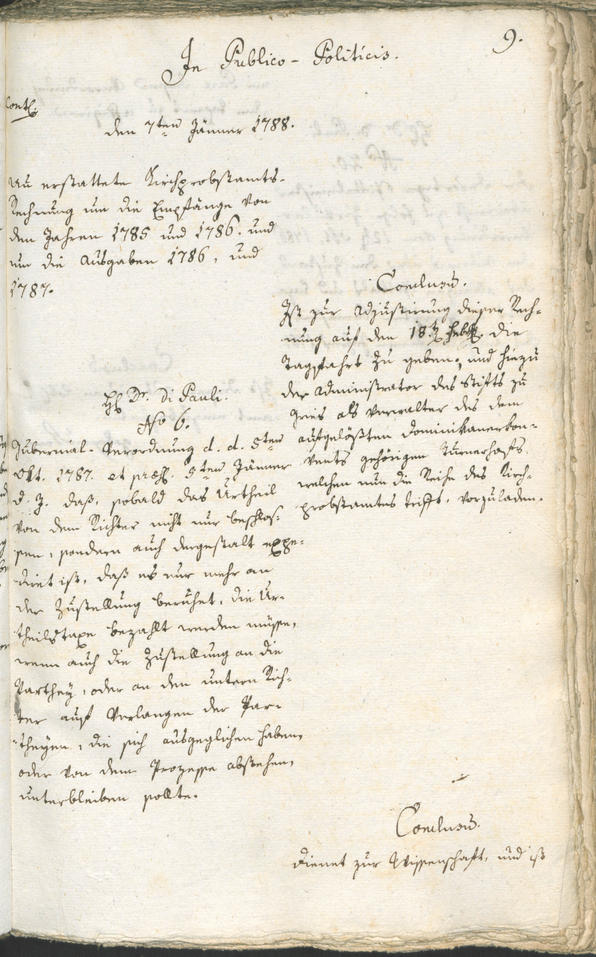 9.
In Publico-Politicis.
den 7ten Jänner 1788.
erstattete Kirchprobstamts-
Rechnung um die Empfänge von
den Jahren 1785 und 1786. und
um die Ausgaben 1786, und
1787.
Conclusum.
Ist zur Adjustirung dieser Rech-
nung auf den 18ten Feb: die
Tagsfahrt zu geben, und hiezu
der Administrator des Stifts zu
Gries als Verwalter des dem
aufgelößten Dominikanerkon-
vents gehörigen
welchen nun die Reihe des Kirch-
probstamtes trifft, vorzuladen.
H. Dr. Di Pauli.
No 6.
Gubernial-Verordnung d. d. 5ten
Okt. 1787. et præs. 5ten Jänner
d. J. daß, sobald das Urtheil
von dem Richter nicht nur beschlos-
sen, sondern auch dergestalt expe-
dirt ist, daß es nur mehr an
der Zustellung beruhet, die Ur-
theilstaxe bezahlt werden müsse,
wenn auch die Zustellung an die
Parthey, oder an den untern Rich-
ter auf Verlangen der Par-
theyen, die sich ausgeglichen haben,
oder von dem Prozesse abstehen,
unterbleiben sollte.
Conclusum.
Dienet zur Wissenschaft, und ist